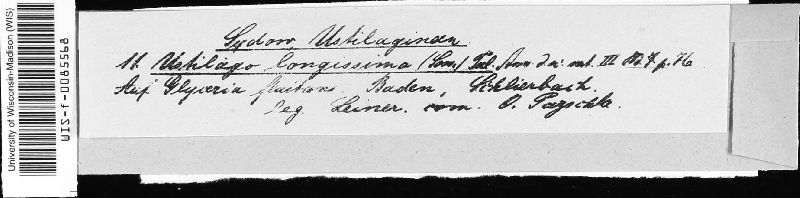 University of Wisconsin-Madison (WIS)
WIS-f-0085568
Sydow, Ustilagineen
11. Ustilago longissima (Sow.) Tul. Ann. d. sc. nat. III Bd. 7. p. 76
Auf Glyceria fluitans. Baden, Schlierbach.
leg. Leiner. com. O. Pazschke.